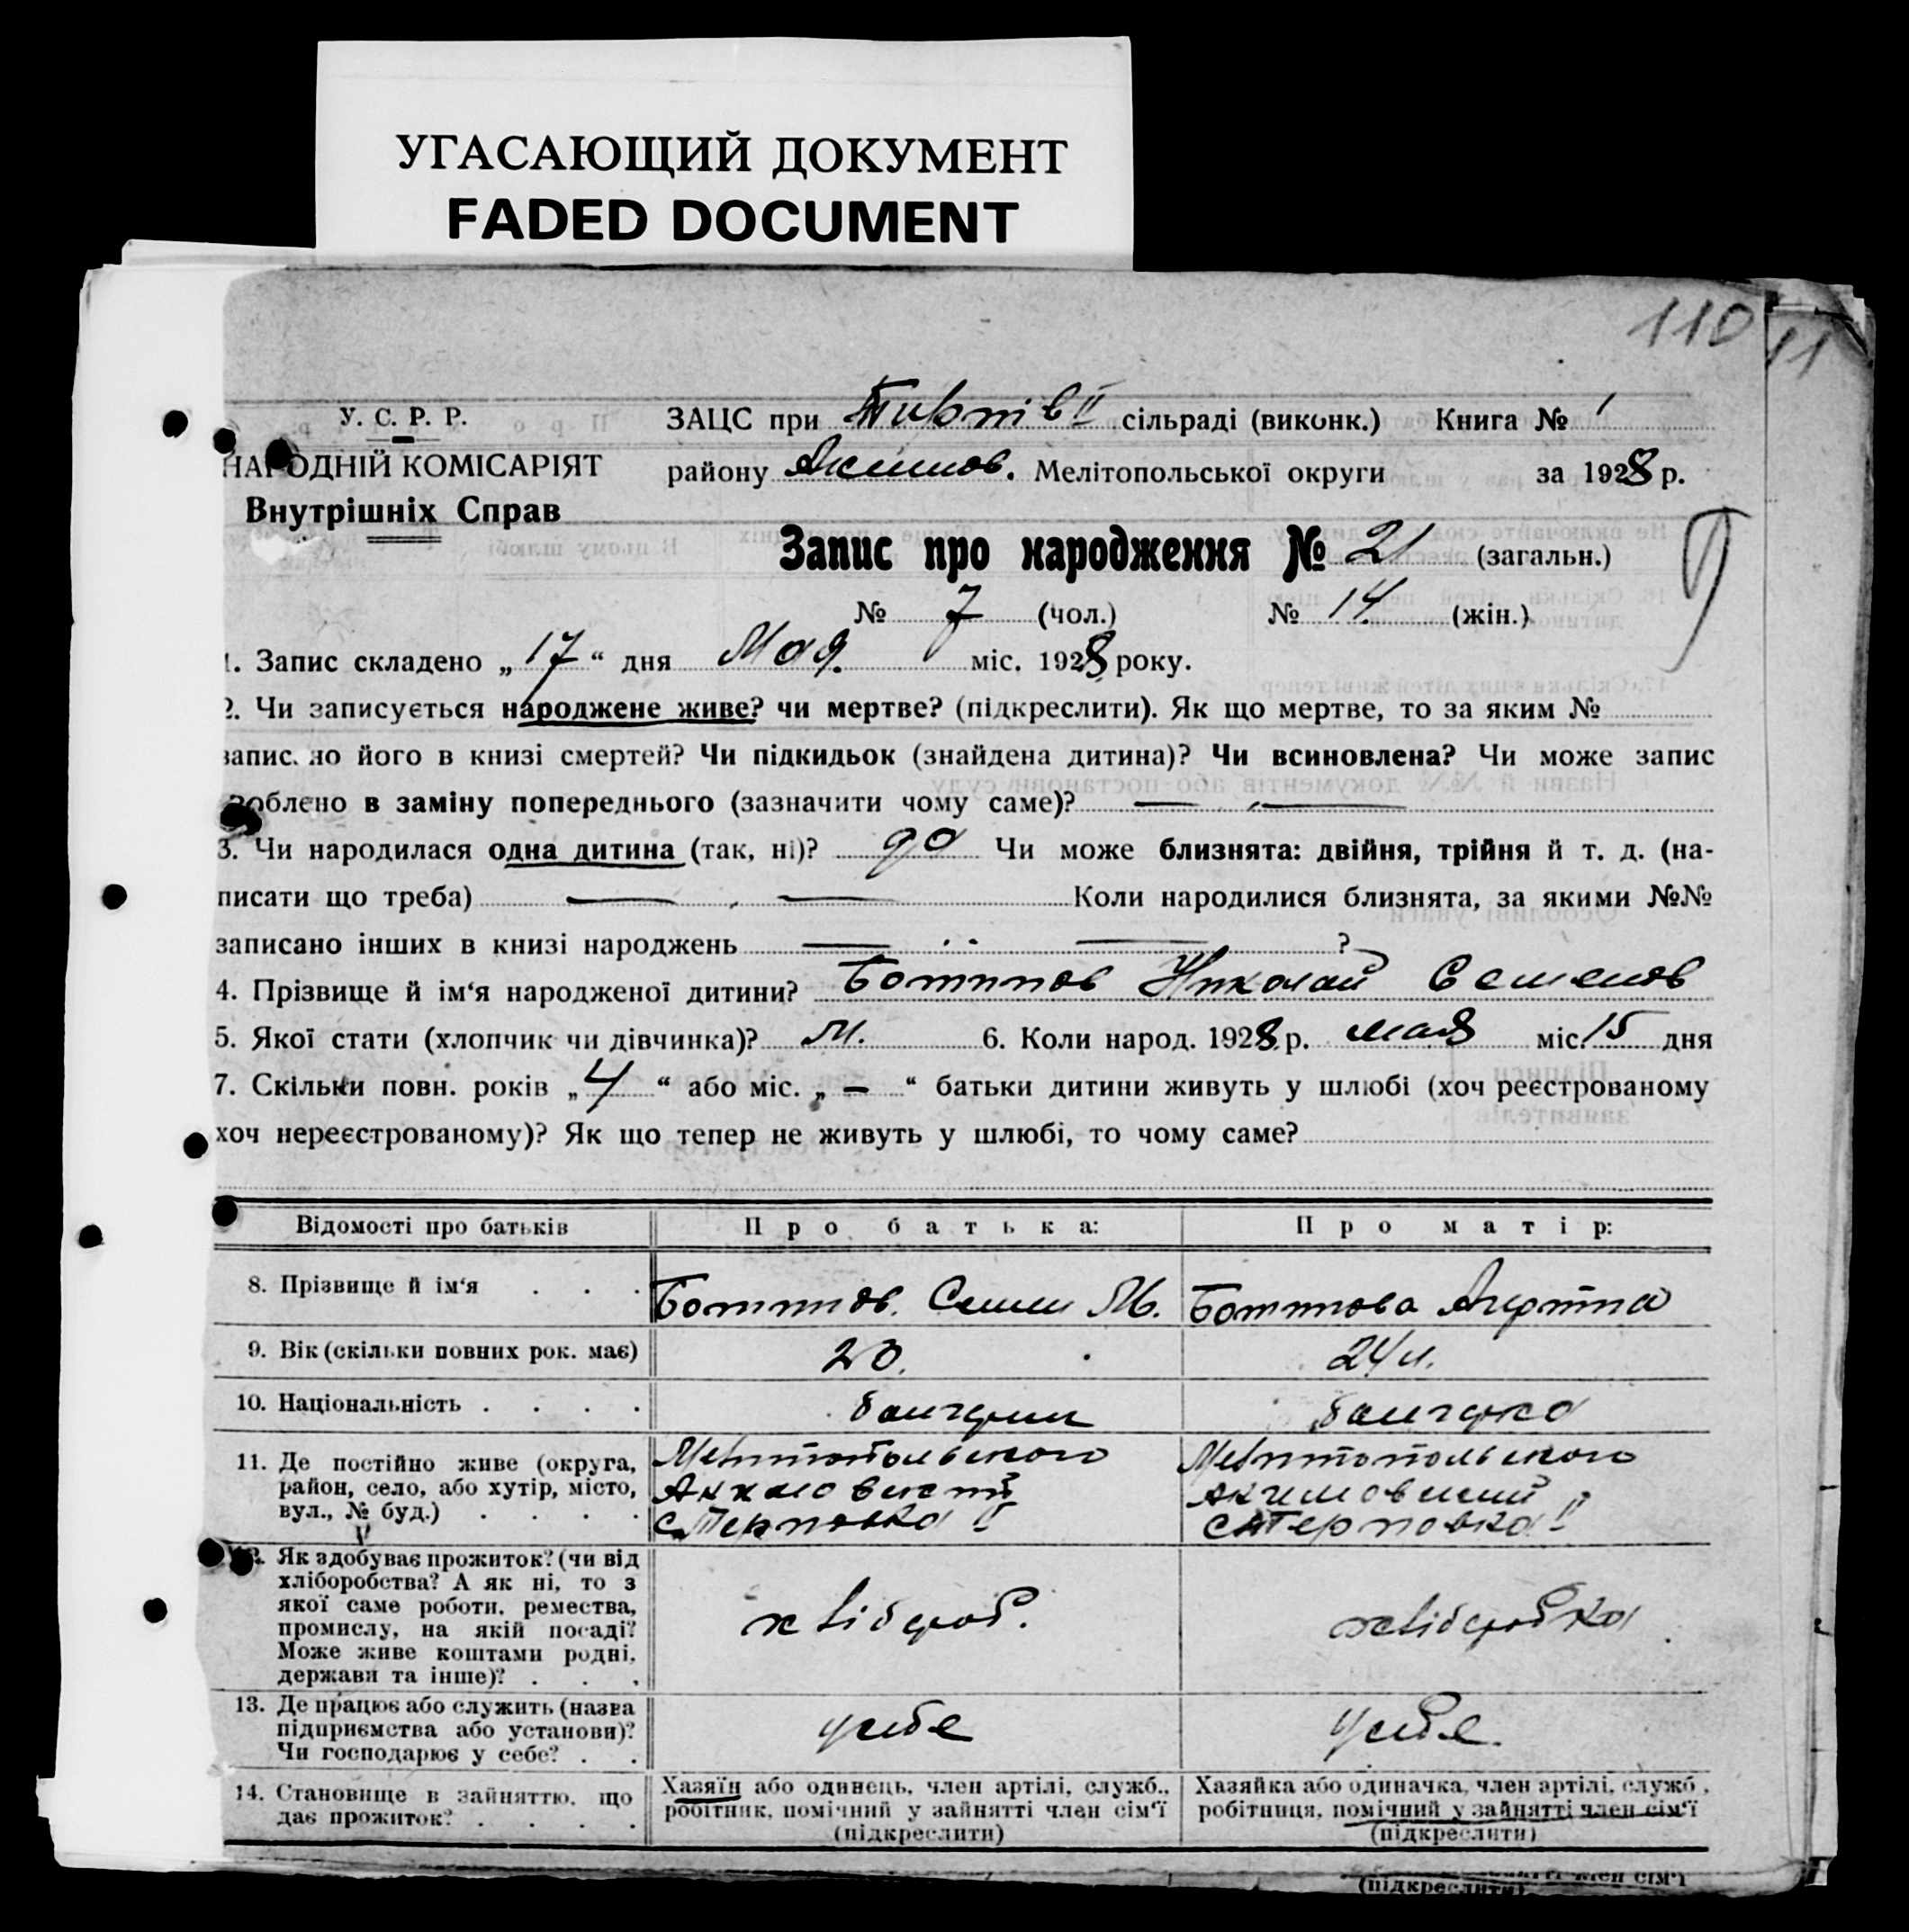 УГАСАЮЩИЙ ДОКУМЕНТ
FADED DOCUMENT
110 11
У. С. Р. Р.
НАРОДНІЙ КОМІСАРІЯТ
Внутрішніх Справ
ЗАЦС при II сільраді (виконк.) Книга № 1
району Акимов. Мелітопольської округи за 1928 р.
Запис про народження № 21 (загальн.)
№ 7 (чол.) № 14 (жін.)
1. Запис складено „17“ дня Мая міс. 1928 року.
2. Чи записується народжене живе? чи мертве? (підкреслити). Як що мертве, то за яким №
запис. но його в книзі смертей? Чи підкидьок (знайдена дитина)? Чи всиновлена? Чи може запис
зроблено в заміну попереднього (зазначити чому саме)? — —
3. Чи народилася одна дитина (так, ні)? да Чи може близнята: двійня, трійня й т. д. (на-
писати що треба) — — Коли народилися близнята, за якими №№
записано інших в книзі народжень — — ?
4. Прізвище й ім‘я народженої дитини? Николай Семенов
5. Якої стати (хлопчик чи дівчинка)? М. 6. Коли народ. 1928 р. мая міс. 15 дня
7. Скільки повн. років „4“ або міс. „—“ батьки дитини живуть у шлюбі (хоч реєстрованому
хоч нереєстрованому)? Як що тепер не живуть у шлюбі, то чому саме?
Відомості про батьків Про батька: Про матір:
8. Прізвище й ім‘я . . . Семен М.
9. Вік (скільки повних рок. має) 24 л.
10. Національність . . . . болгарин болгарка
11. Де постійно живе (округа, Мелитопольского Мелитопольского
район, село, або хутір, місто, Акимовский
вул., № буд.) . . . . с. Терповка II с. Терповка II
12. Як здобуває прожиток? (чи від
хліборобства? А як ні, то з
якої саме роботи, ремества, хлібороб. хліборобка
промислу, на якій посаді?
Може живе коштами родні,
держави та інше)? . . .
13. Де працює або служить (назва
підприємства або установи)? у себе у себе.
Чи господарює у себе? . .
14. Становище в зайняттю, що Хазяїн або одинець, член артілі, служб., Хазяйка або одиначка, член артілі, служб.,
дає прожиток? . . . . робітник, помічний у зайнятті член сім‘ї робітниця, помічний у зайнятті член сім‘ї
(підкреслити) (підкреслити)
(підкреслити)